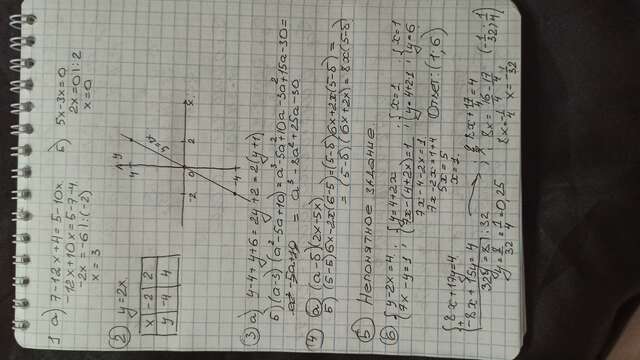 1 а) 7-12x+4=5-10x
-12x+10x=5-7-4
-2x=6 |:(-2)
x=3
б) 5x-3x=0
2x=0 |:2
x=0
2) y=2x
x -2 2
y -4 4
y
4
-2
0
2
x
3) а) y-4+4+6=2y+2=2(y+1)
б) (a-3)(a²-5a+10)=a³-5a²+10a-3a²+15a-30=
=a³-8a²+25a-30
4) а) (a-b)(2x+5x)
б) (b-5)6x-2x(b-5)=(5-b)(6x+2x(5-b)=
=(5-b)(6x+2x)=8x(5-b)
5) Непонятное задание.
6) {y-2x=4 ; {y=4+2x ; {x=1 ; {x=1
{7x-y=1 ; {7x-(4+2x)=1 ; {y=4+2·1 ; {y=6
7x-4-2x=1
7x-2x=1+4
5x=5
x=1.
Ответ: (1;6)
{8x+17y=4
+
{-8x+15y=4
32y=8 |:32
y=8/32=1/4=0,25
8x+17/4=4
8x=16-17/4
8x=-1/4
x=-1/32
(-1/32; 1/4)